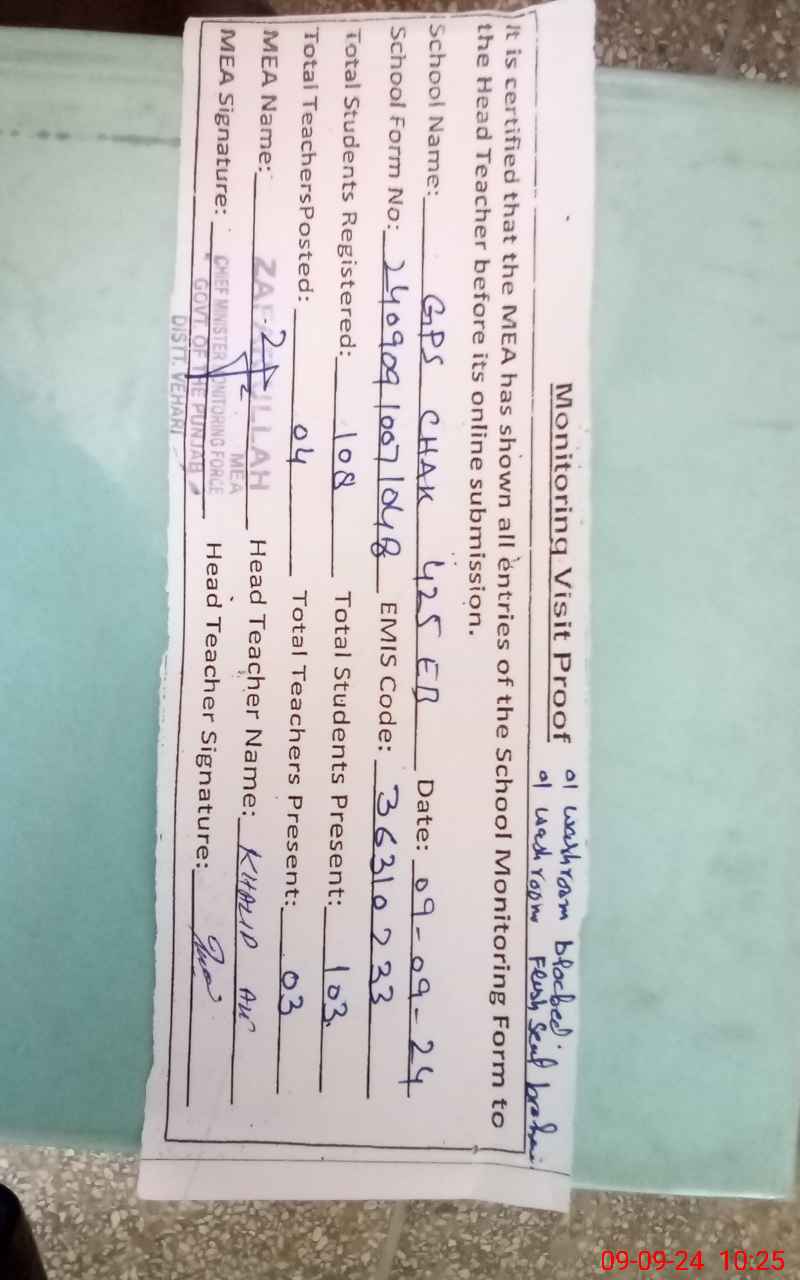 Monitoring Visit Proof
01 washroom blocked.
01 washroom Flush seat
It is certified that the MEA has shown all entries of the School Monitoring Form to
the Head Teacher before its online submission.
School Name: GPS CHAK 425 EB Date: 09-09-24
School Form No: 2409091007104B EMIS Code: 36310233
Total Students Registered: 108 Total Students Present: 103
Total TeachersPosted: 04 Total Teachers Present: 03
MEA Name: Head Teacher Name: KHALID
MEA
MEA Signature: Head Teacher Signature:
CHIEF MINISTER MONITORING FORCE
GOVT. OF THE PUNJAB
DISTT. VEHARI
09-09-24 10:25